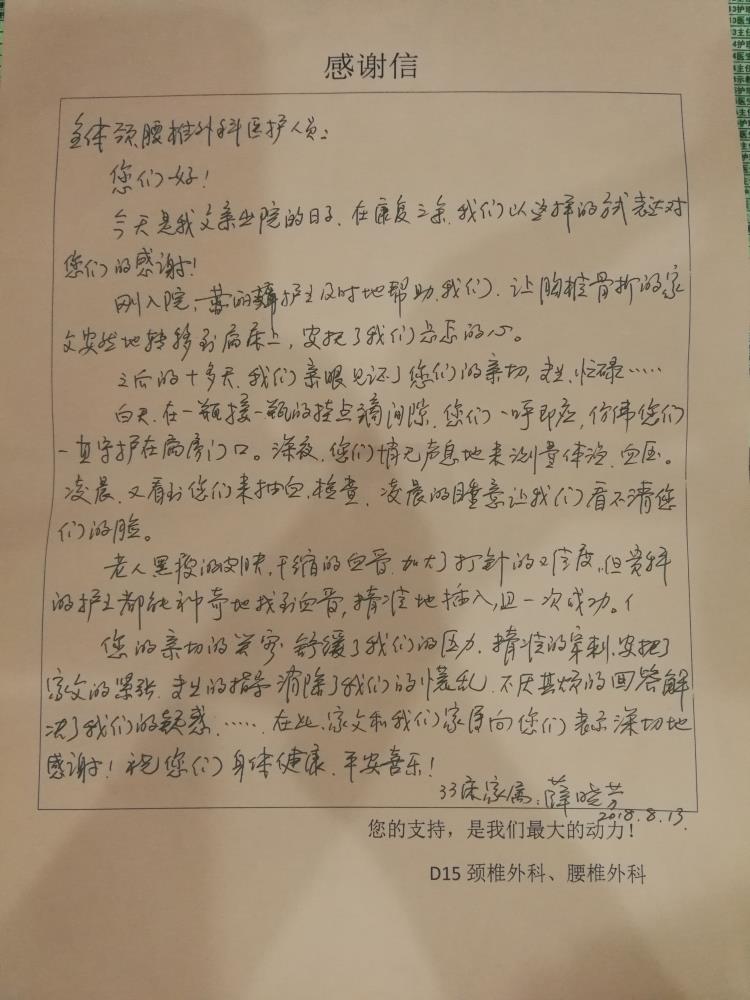 感谢信
全体颈腰椎外科医护人员：
您们好！
今天是我父亲出院的日子，在康复之余，我们以这样的方式表达对
您们的感谢！
刚入院，护士及时地帮助我们，让胸椎骨折的家
父安然地转移到病床上，安抚了我们忐忑的心。
之后的十多天，我们亲眼见证了您们的亲切，专业，忙碌……
白天，在一瓶接一瓶的挂点滴间隙，您们一呼即应，仿佛您们
一直守护在病房门口。深夜，您们悄无声息地来测量体温、血压。
凌晨，又看到您们来抽血，检查，凌晨的睡意让我们看不清您
们的脸。
老人黑瘦的皮肤，干缩的血管，加大了打针的难度，但贵科
的护士都能神奇地找到血管，精准地插入，且一次成功。
您的亲切的笑容，舒缓了我们的压力，精准的穿刺，安抚了
家父的紧张，专业的指导消除了我们的慌乱，不厌其烦的回答解
决了我们的疑惑，……在此，家父和我们家属向您们表示深切地
感谢！祝您们身体健康，平安喜乐！
33床家属：薛晓芳
2018.8.13.
您的支持，是我们最大的动力！
D15 颈椎外科、腰椎外科